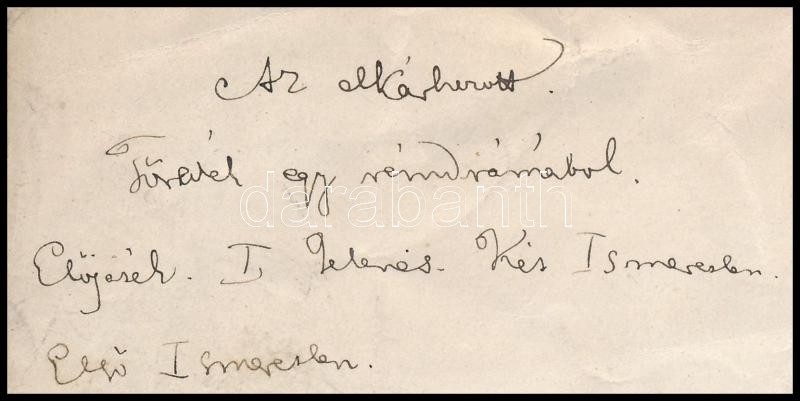 Az elkárhozott.
Töredék egy rémdrámából.
darabanth
Előjáték. I Jelenés. Két Ismeretlen.
Első Ismeretlen.